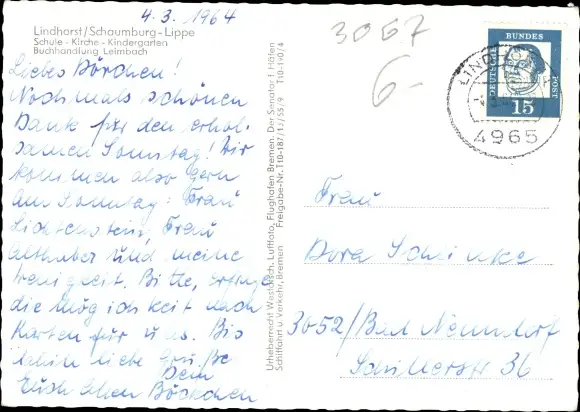 4.3.1964
Lindhorst/Schaumburg-Lippe
Schule - Kirche - Kindergarten
Buchhandlung Leimbach
Liebes Dörchen!
Nochmals schönen
Dank für den erhol-
samen Sonntag! Wir
kommen also gern
am Sonntag: Frau
Lichtenstein, Frau
althaber und meine
Wenigkeit. Bitte,
die Möglichkeit nach
Karten für uns. Bis
dahin liebe Grüße
Dein
Euch allen Böckchen
Urheberrecht Westdtsch. Luftfoto, Flughafen Bremen. Der Senator f. Häfen
Schiffahrt u. Verkehr, Bremen Freigabe-Nr. T10-187/1/55/9 T10-190/4
3067
6-
DEUTSCHE BUNDESPOST
15
LINDHORST
4965
Frau
Dora
3052/Bad Nenndorf
Schillerstr 36